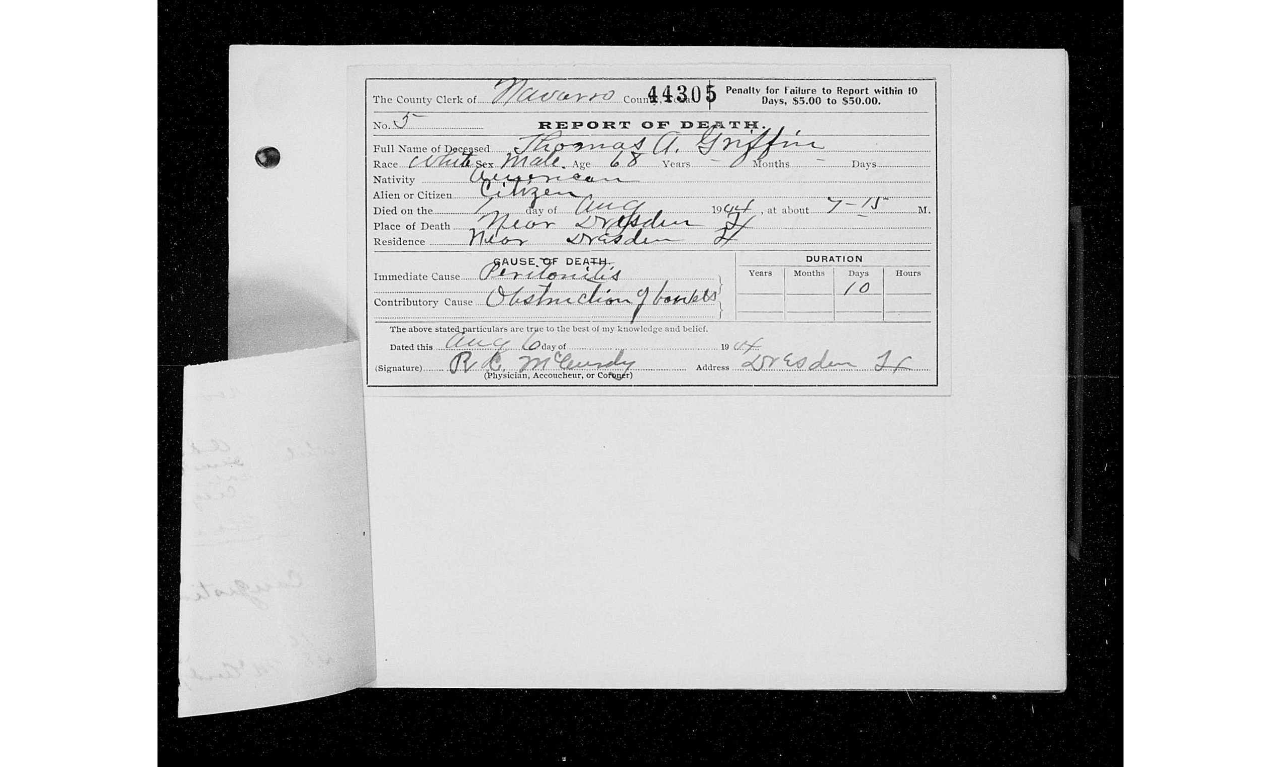 The County Clerk of Navarro County, Texas 44305 Penalty for Failure to Report within 10 Days, $5.00 to $50.00.
No. 5 REPORT OF DEATH.
Full Name of Deceased Thomas A. Griffin
Race White Sex Male. Age 68 Years – Months – Days
Nativity American
Alien or Citizen Citizen
Died on the day of Aug 1904, at about 7–15 M.
Place of Death Near Dresden Tx
Residence Near Dresden Tx
CAUSE OF DEATH. DURATION
Immediate Cause Peritonitis Years Months Days Hours
10
Contributory Cause Obstruction of bowels
The above stated particulars are true to the best of my knowledge and belief.
Dated this Aug 6 day of 1904
(Signature) R C. McCurdy Address Dresden Tx
(Physician, Accoucheur, or Coroner)